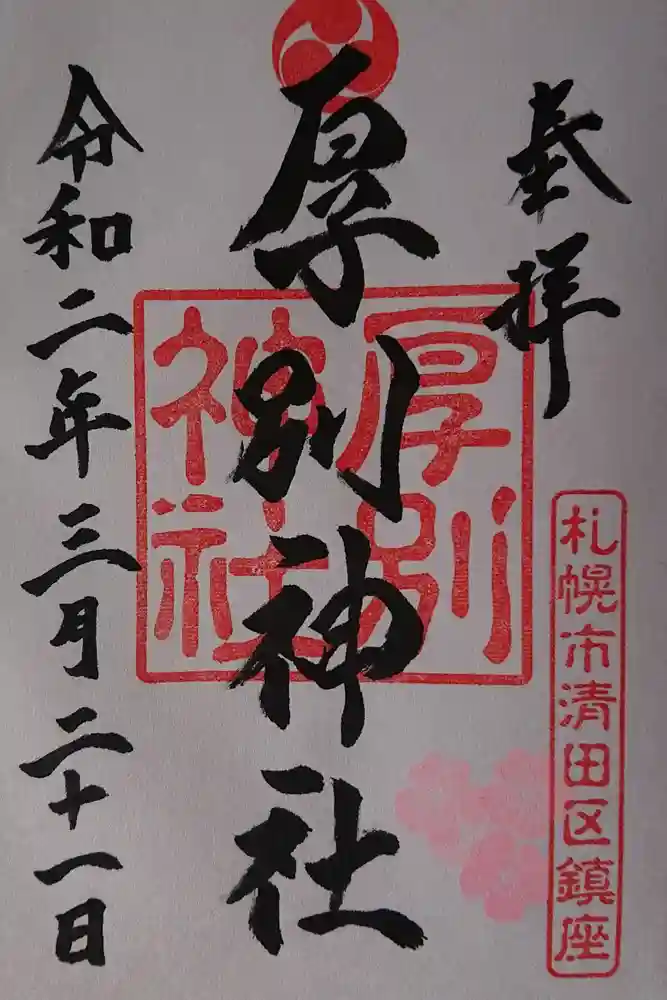 奉拝
札幌市清田区鎮座
厚別神社
厚別
神社
令和二年三月二十一日